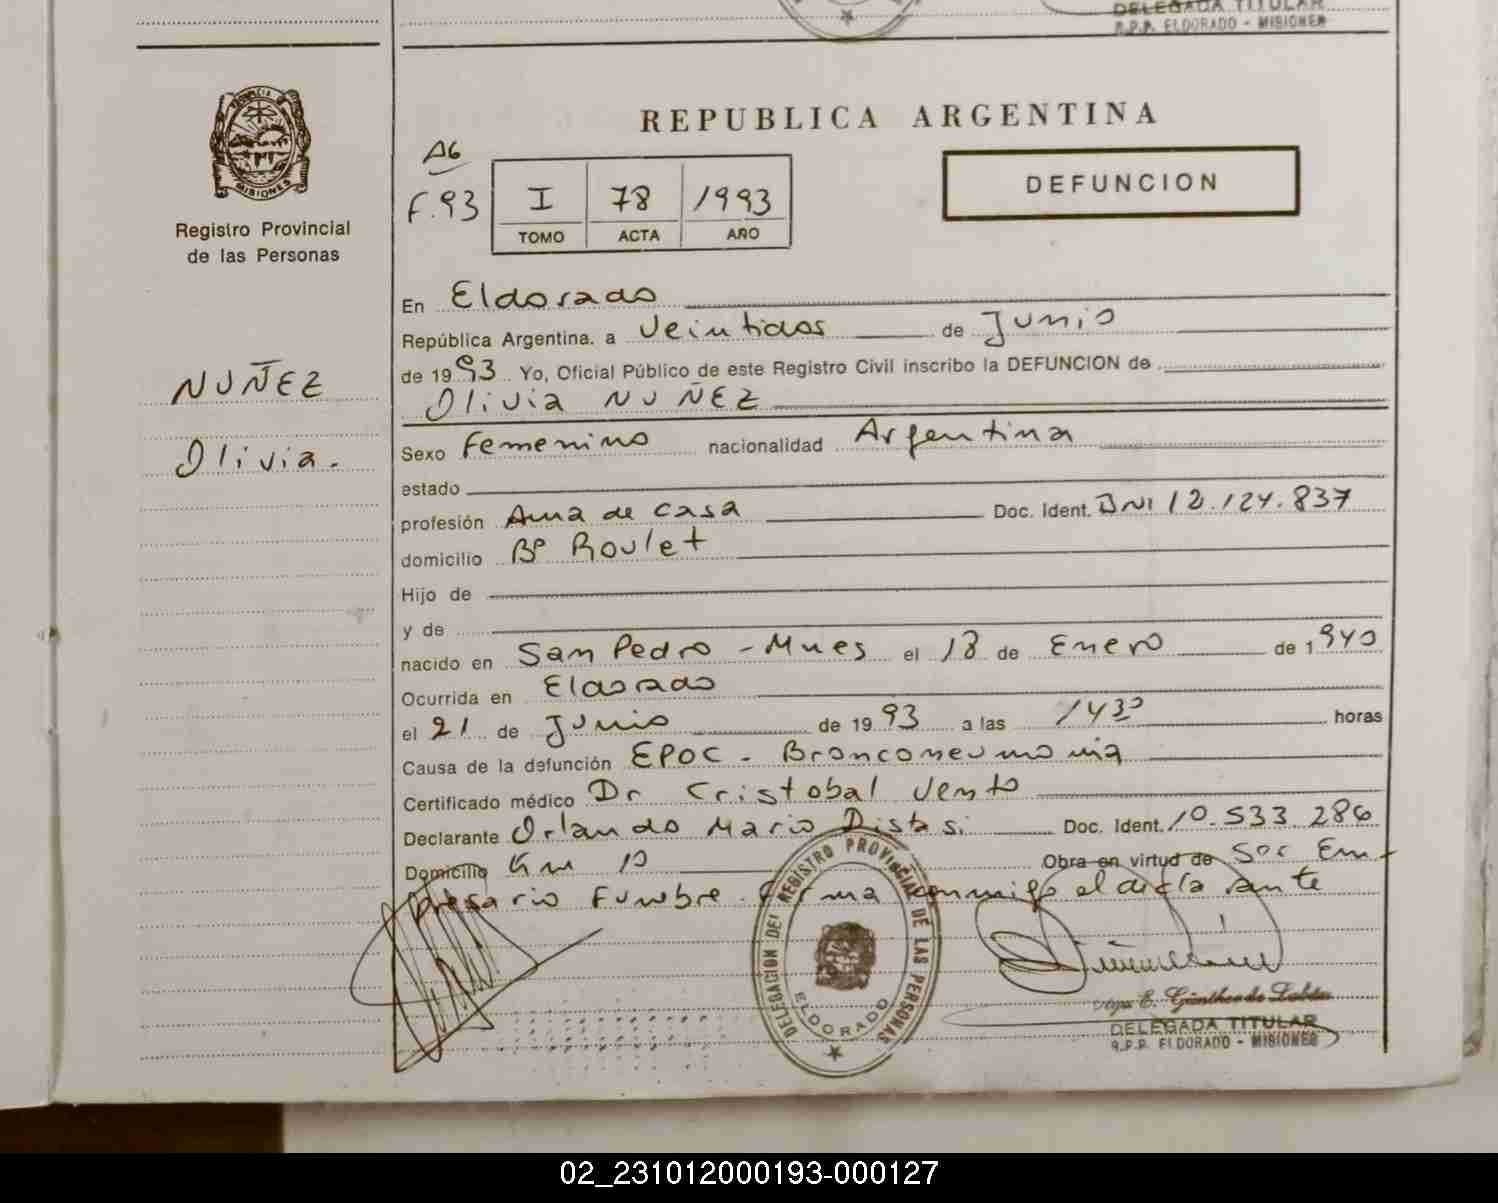 DELEGADA TITULAR
R.P.P. ELDORADO - MISIONES
PROVINCIA DE MISIONES
Registro Provincial
de las Personas
NUÑEZ
Olivia.
REPUBLICA ARGENTINA
F.93
I 78 1993
TOMO ACTA AÑO
DEFUNCION
En Eldorado
República Argentina. a Veintidos de Junio
de 1993 Yo, Oficial Público de este Registro Civil inscribo la DEFUNCION de
Olivia NUÑEZ
Sexo Femenino nacionalidad Argentina
estado
profesión Ama de casa Doc. Ident. DNI 12.124.837
domicilio Bº Roulet
Hijo de
y de
nacido en San Pedro - Mnes el 18 de Enero de 1940
Ocurrida en Eldorado
el 21 de Junio de 1993 a las 14³⁰ horas
Causa de la defunción EPOC - Bronconeumonia
Certificado médico Dr Cristobal Vento
Declarante Orlando Mario Distasi Doc. Ident. 10.533.286
Domicilio Km 10 Obra en virtud de Ser Em-
presario Funebre. Firma conmigo el declarante
DELEGACION DEL REGISTRO PROVINCIAL DE LAS PERSONAS
ELDORADO
DELEGADA TITULAR
R.P.P. ELDORADO - MISIONES
02_231012000193-000127